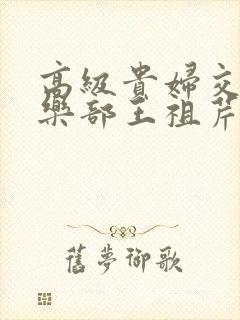 高級貴婦交
樂部王祖芹
舊夢御歌